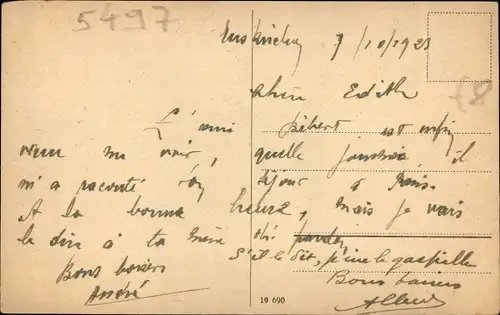 5497
Euskirchen 7/10/1923
chère Edith
L'ami bébert est enfin
venu me voir, quelle journée il
m'a raconté son séjour à Paris.
A la bonne heure, mais je vais
le dire à ta mère oh! pardon
s'il le dit, je te le gaspille
Bons baisers
André
Bons baisers
Albert
19 690